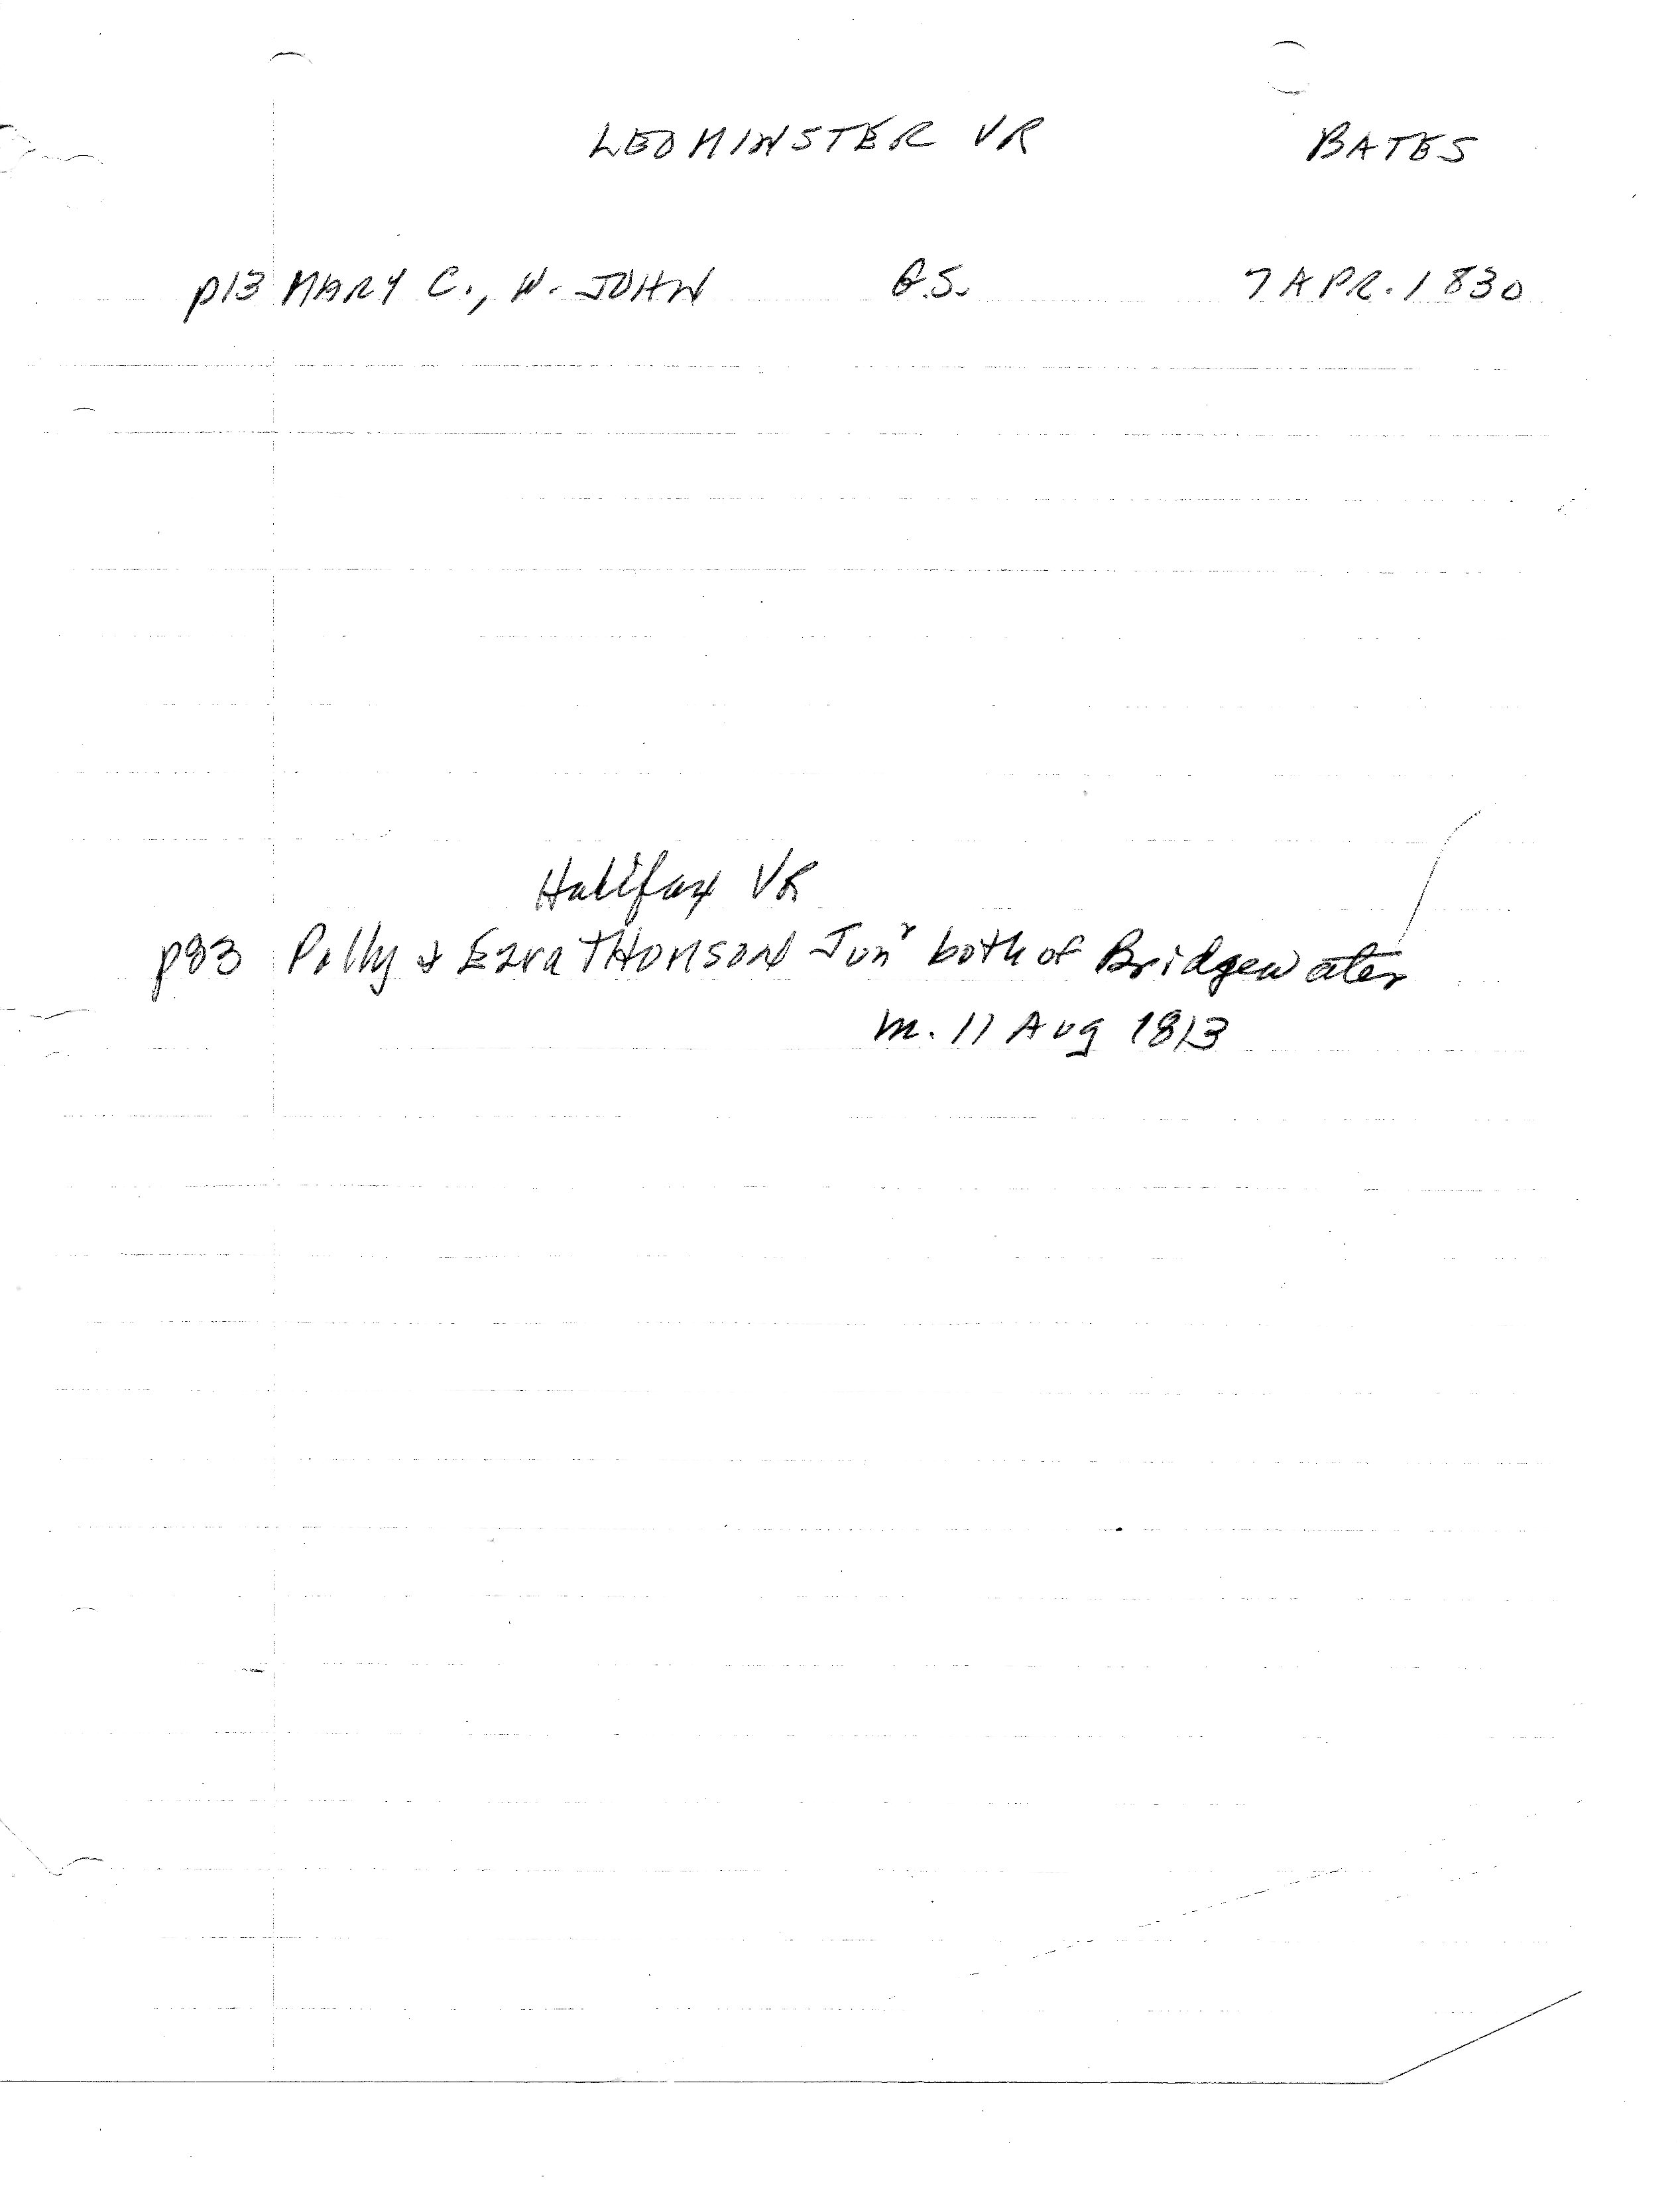 LEOMINSTER VR BATES
p13 MARY C., W. JOHN G.S. 7 APR. 1830
Halifax VR
p83 Polly & Ezra THOMSON Junr both of Bridgewater
m. 11 Aug 1813